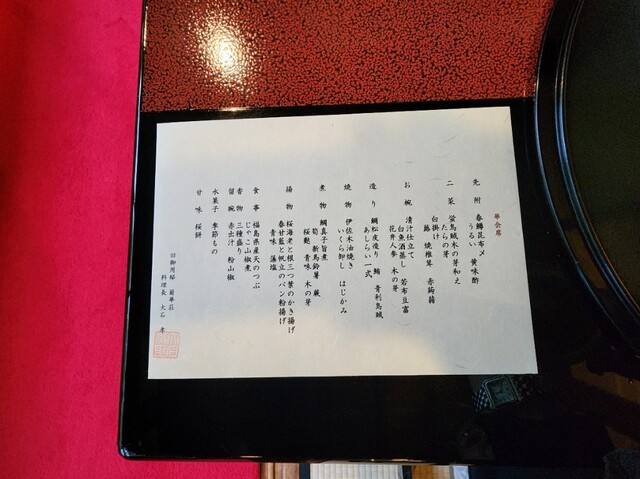 華会席
先附 春鱒昆布〆
うるい 黄味酢
二菜 蛍烏賊木の芽和え
たらの芽
白掛け
蕗 焼椎茸 赤蒟蒻
お椀 清汁仕立て
白魚酒蒸し 若布豆富
花弁人参 木の芽
造り 鯛松皮造り 鮪 青利烏賊
あしらい一式
焼物 伊佐木油焼き
いくら卸し はじかみ
煮物 鯛真子旨煮
筍 新馬鈴薯 蕨
桜麩 青味 木の芽
揚物 桜海老と根三つ葉のかき揚げ
春甘藍と帆立のパン粉揚げ
青味 藻塩
食事 福島県産天のつぶ
じゃこ山椒煮
香物 三種盛り
留椀 赤出汁 粉山椒
水菓子 季節もの
甘味 桜餅
旧御用邸 菊華荘
料理長 大石 孝